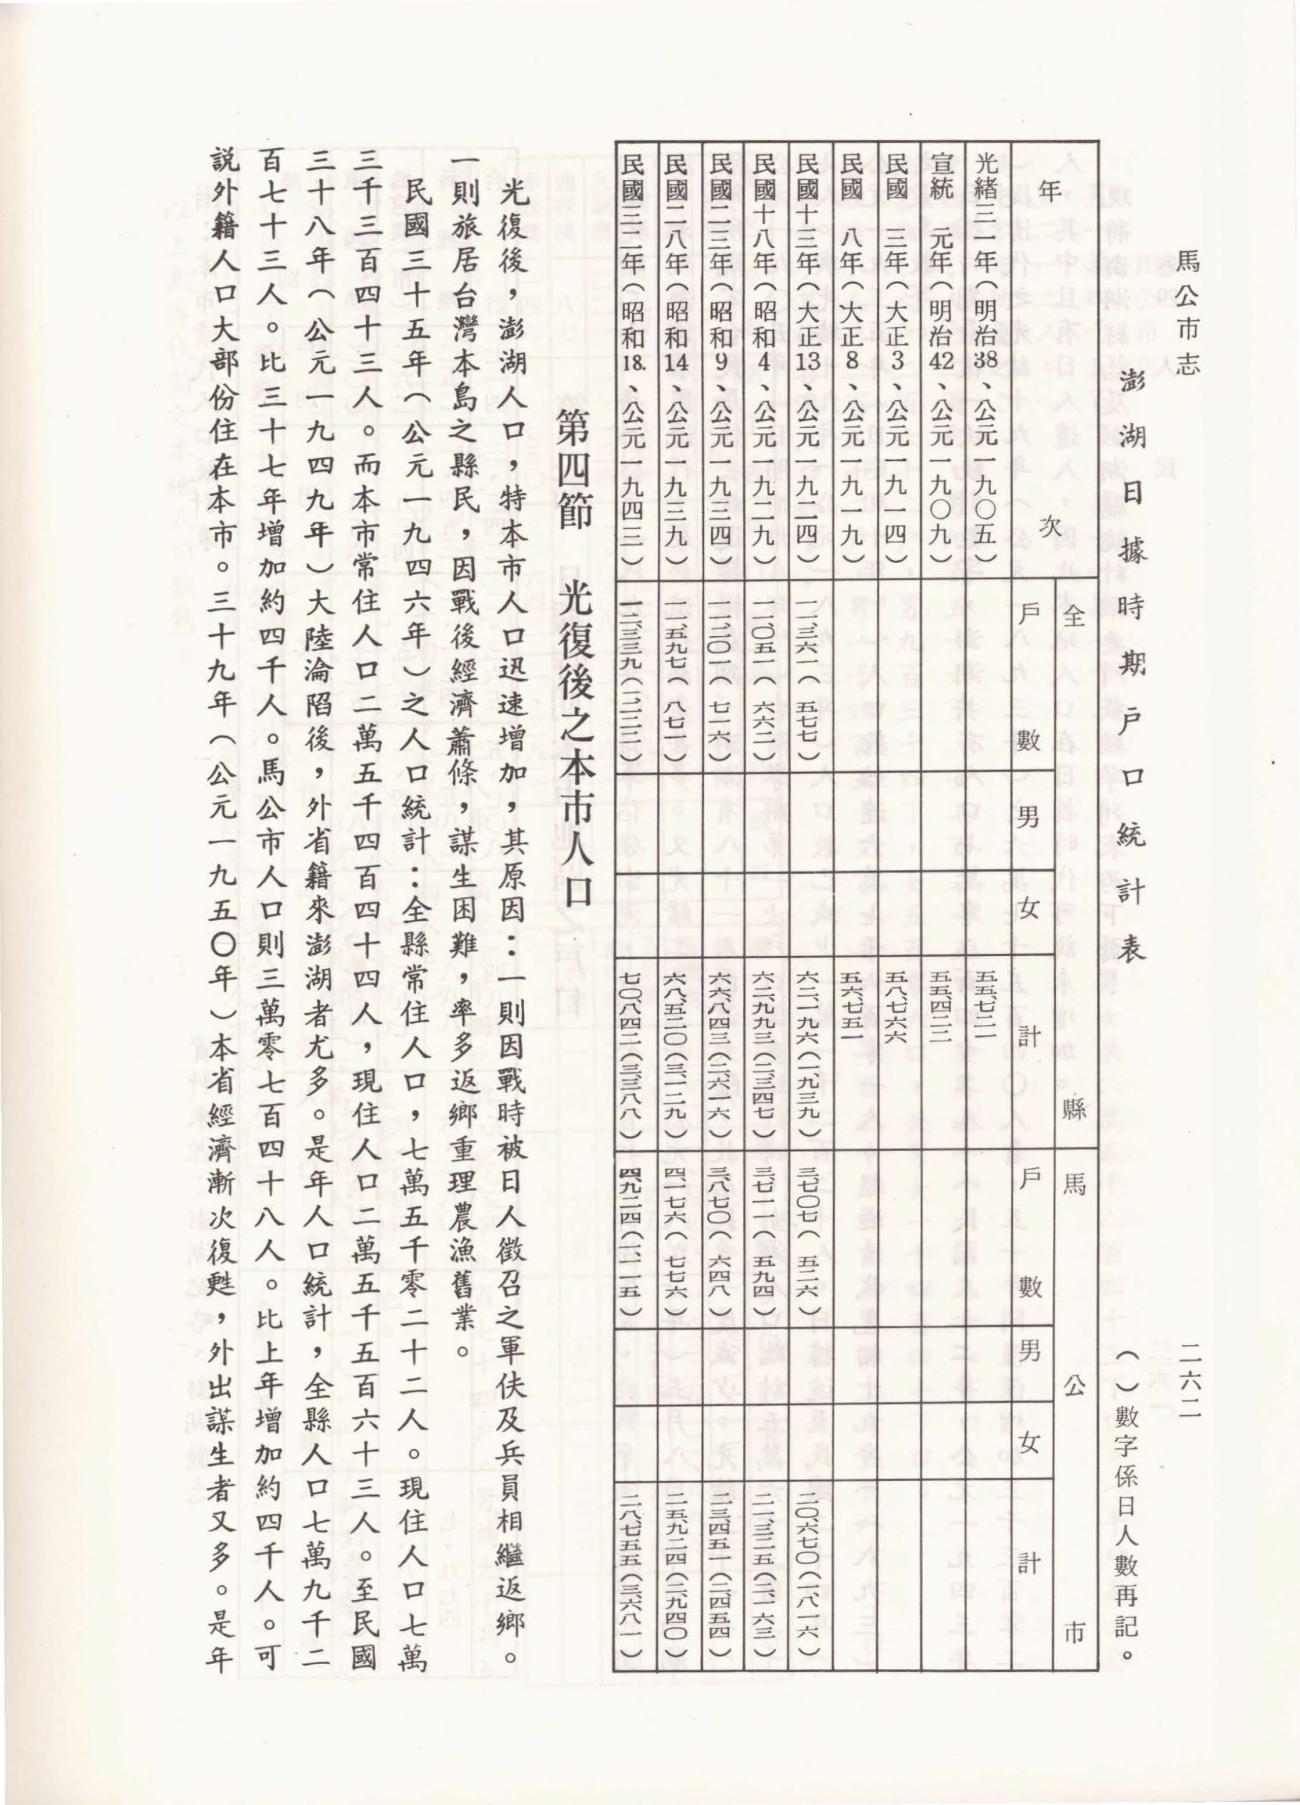 馬公市志
二六二
澎湖日據時期戶口統計表
（　）數字係日人數再記。
年次
全縣
戶數
男
女
計
馬公市
戶數
男
女
計
光緒三一年（明治38、公元一九〇五） 五五、七二一
宣統　元年（明治42、公元一九〇九） 五五、四二二
民國　三年（大正3、公元一九一四） 五八、七六六
民國　八年（大正8、公元一九一九） 五六、七五一
民國十三年（大正13、公元一九二四） 一一、三六一（　五七七） 六二、一九六（一、九三九） 三、七〇七（　五二六） 二〇、六七〇（一、八一六）
民國十八年（昭和4、公元一九二九） 一一、〇五一（　六六二） 六二、九九三（二、三四七） 三、七一一（　五九四） 二一、三二五（二、一六三）
民國二三年（昭和9、公元一九三四） 一一、二〇一（　七一六） 六六、八四三（二、六一六） 三、八七〇（　六四八） 二三、四五一（二、四五四）
民國二八年（昭和14、公元一九三九） 一一、五九七（　八七一） 六八、五二〇（三、一二九） 四、一七六（　七七六） 二五、九二四（二、九四〇）
民國三二年（昭和18.、公元一九四三） 一二、三三九（一、二二二） 七〇、八四二（三、三八八） 四、九二四（一、一一五） 二八、七五五（三、六八一）
第四節　光復後之本市人口
光復後，澎湖人口，特本市人口迅速增加，其原因：一則因戰時被日人徵召之軍伕及兵員相繼返鄉。
一則旅居台灣本島之縣民，因戰後經濟蕭條，謀生困難，率多返鄉重理農漁舊業。
民國三十五年（公元一九四六年）之人口統計：全縣常住人口，七萬五千零二十二人。現住人口七萬
三千三百四十三人。而本市常住人口二萬五千四百四十四人，現住人口二萬五千五百六十三人。至民國
三十八年（公元一九四九年）大陸淪陷後，外省籍來澎湖者尤多。是年人口統計，全縣人口七萬九千二
百七十三人。比三十七年增加約四千人。馬公市人口則三萬零七百四十八人。比上年增加約四千人。可
説外籍人口大部份住在本市。三十九年（公元一九五〇年）本省經濟漸次復甦，外出謀生者又多。是年